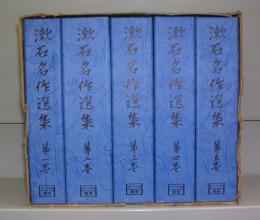 漱石名作選集 第一巻
漱石名作選集 第二巻
漱石名作選集 第三巻
漱石名作選集 第四巻
漱石名作選集 第五巻